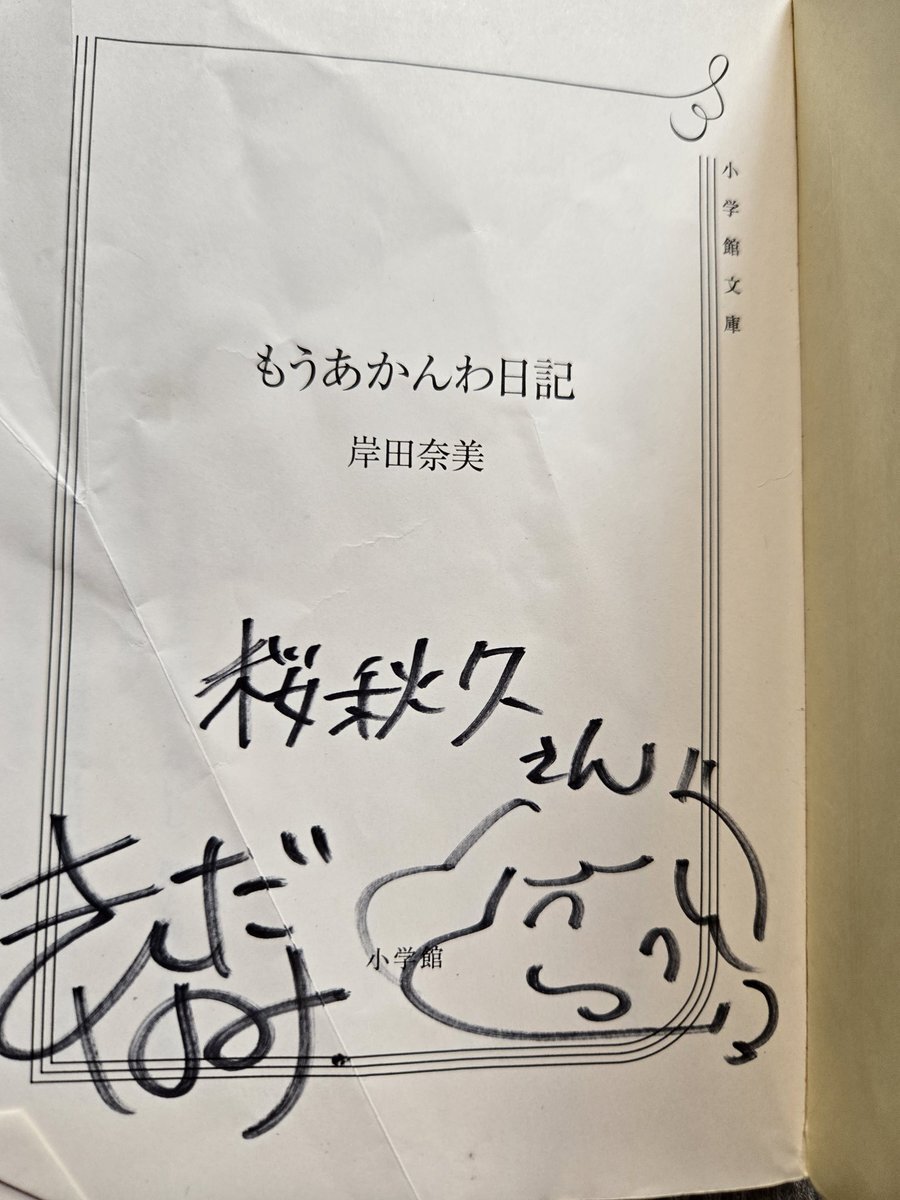 小学館文庫
もうあかんわ日記
岸田奈美
桜秋久
さん
きしだ
なみ
小学館